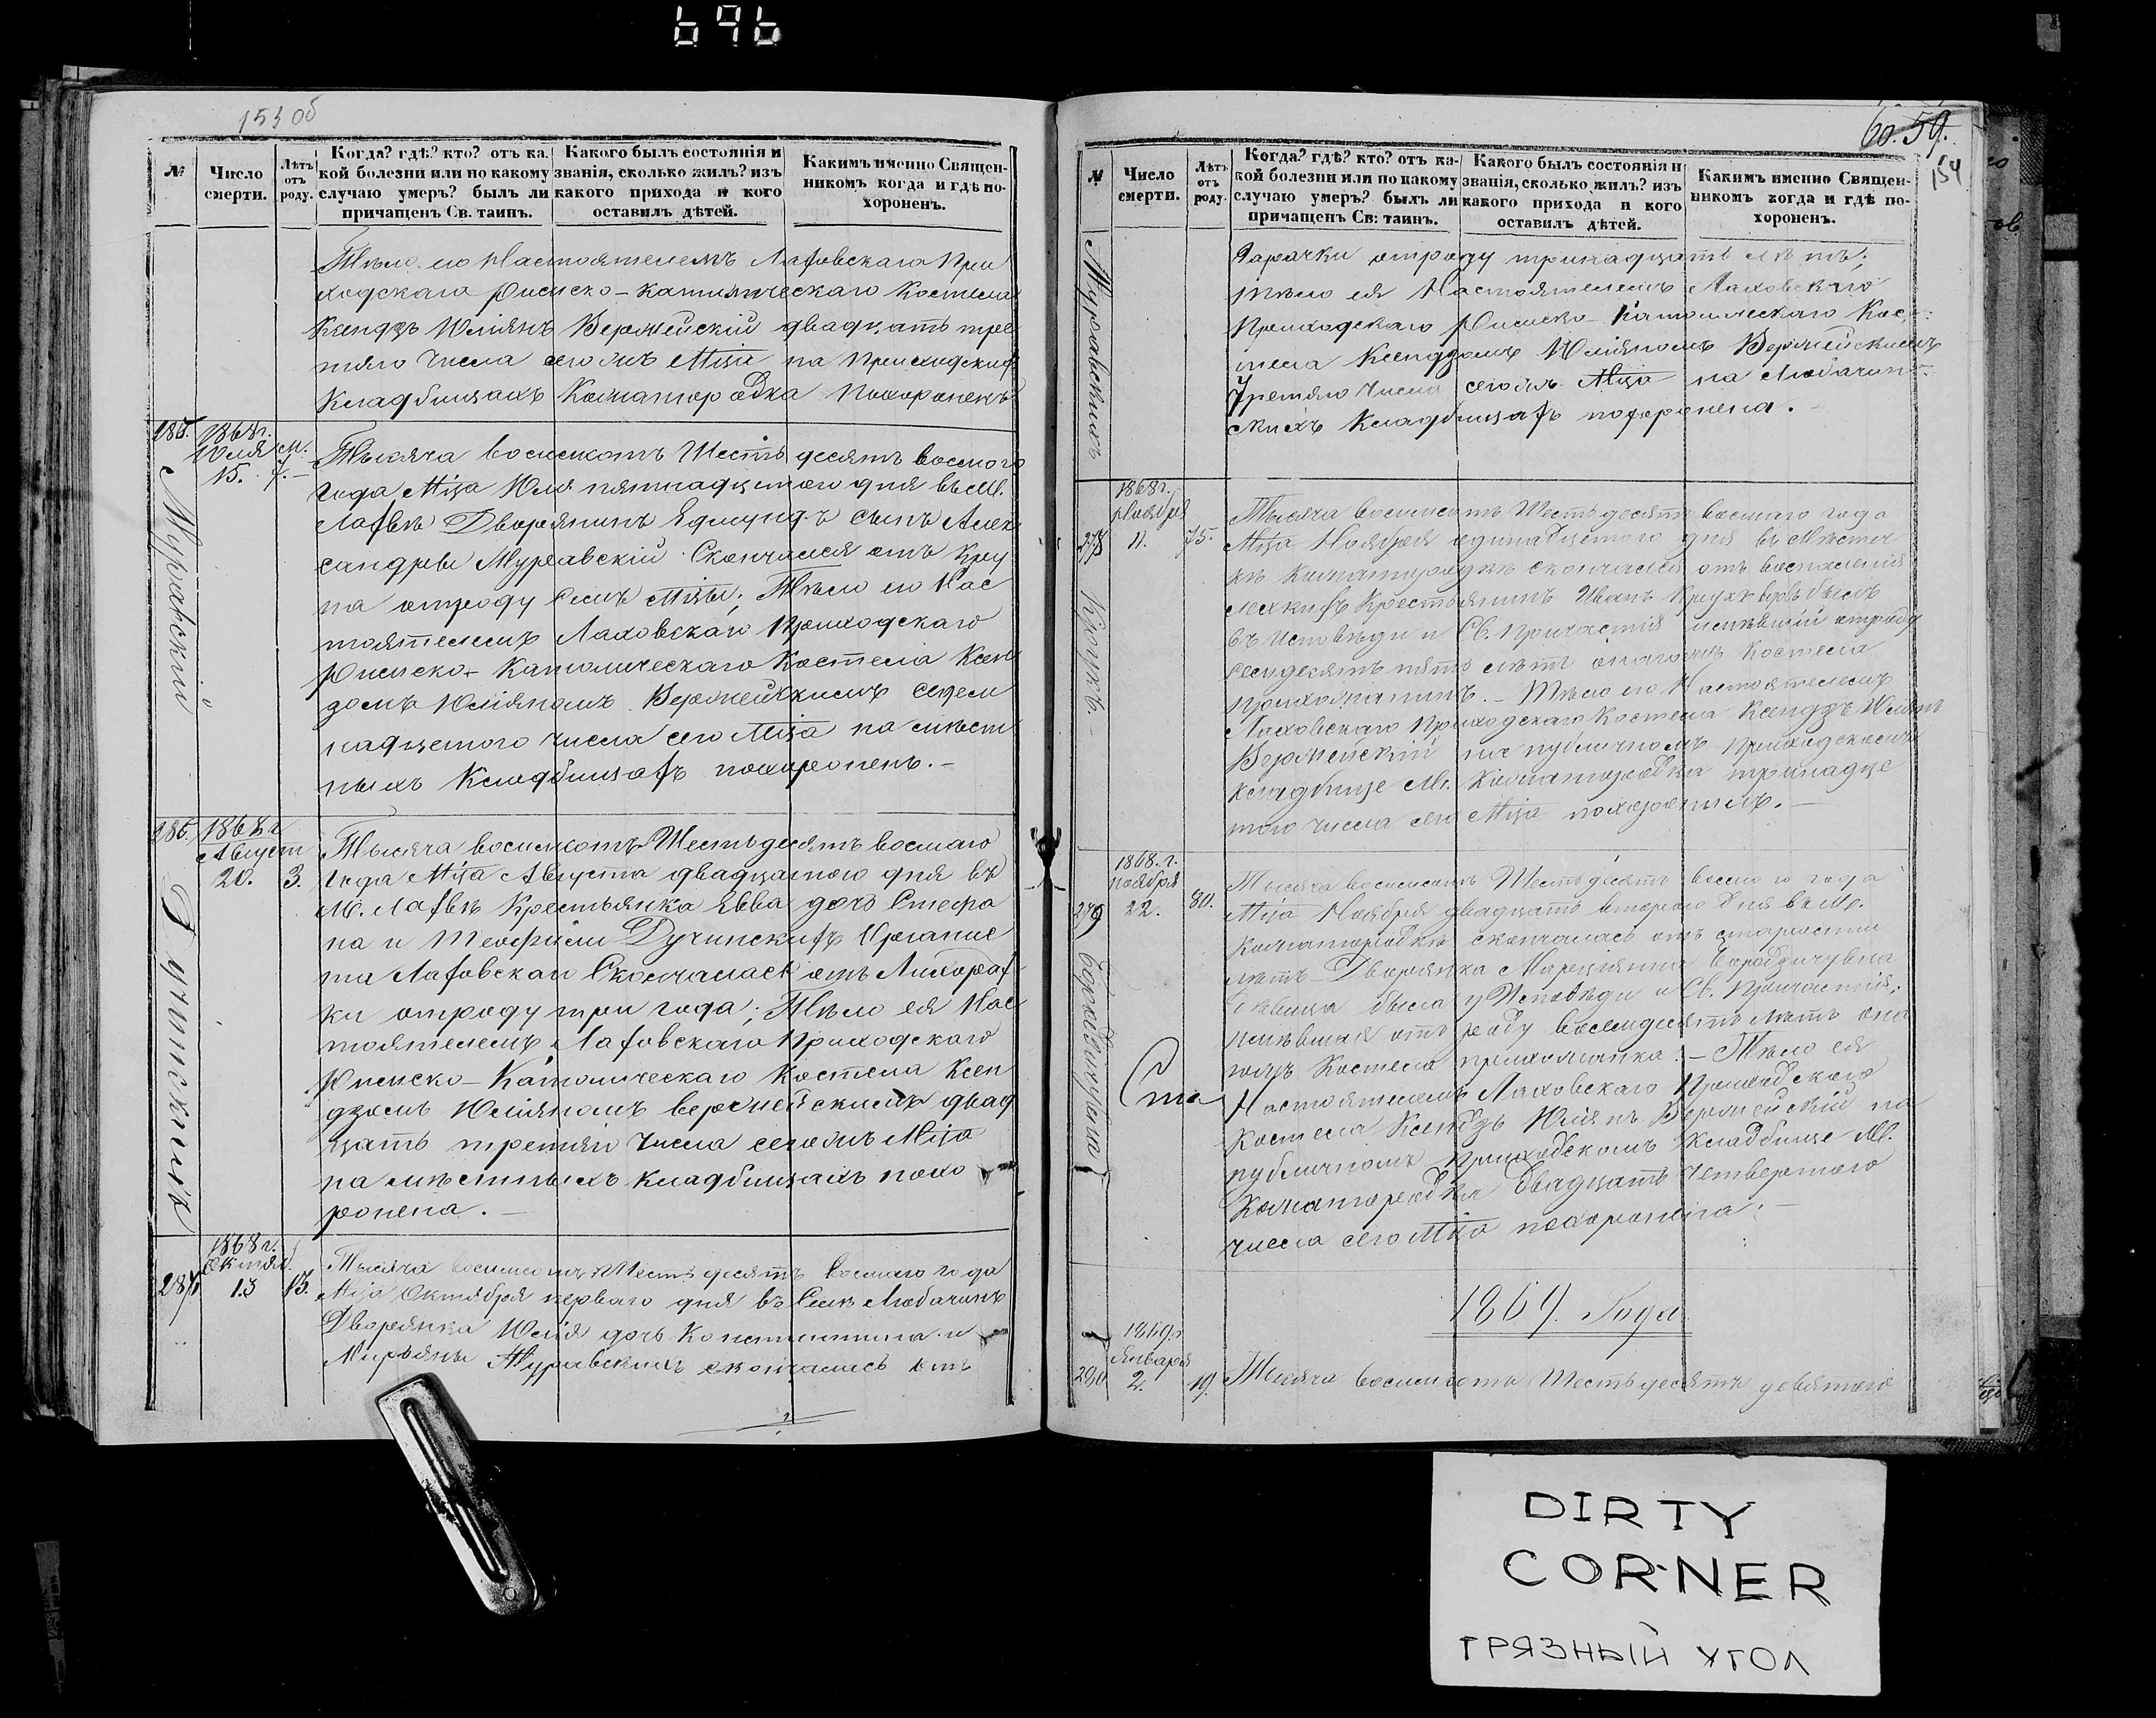 696
153 об
№
Число смерти.
Лѣтъ отъ роду.
Когда? гдѣ? кто? отъ ка-
кой болезни или по какому
случаю умеръ? былъ ли
причащенъ Св. таинъ.
Какого былъ состоянія и
званія, сколько жилъ? изъ
какого прихода и кого
оставилъ дѣтей.
Какимъ именно Священ-
никомъ когда и гдѣ по-
хороненъ.
Тѣло его Настоятелемъ Лаховскаго При
ходскаго Римско-Католическаго Костела
Ксендзъ Юліянъ Вержейскій двадцать тре
тяго Числа сегожъ Мца на Приходских
Кладбищахъ Комаровка Похороненъ
285.
1868 г.
Июля
15.
м.
7.
Муравскій
Тысяча восимсотъ Шестьдесятъ восмого
Года Мца Юля пятнадцатого дня въ М.
Лахвѣ Дворянинъ Едмундъ сынъ Алек
сандры Муравскій Скончался отъ Кру
па отроду Семъ Мцы; Тѣло его Нас
тоятелемъ Лаховскаго Приходскаго
Римско-Католическаго Костела Ксен
дзомъ Юліяномъ Вержейскимъ Семъ
надцетого числа сего Мца на мѣст
ныхъ Кладбищахъ похороненъ.-
286.
1868 г.
Август
20.
3.
Дучинских
Тысяча восимсотъ Шестьдесятъ восмаго
Года Мца Августа двадцатого дня въ
М. Лахвѣ Крестьянка Евва дочь Стефа
на и Теофили Дучинскихъ Органис
та Лаховскаи Скончалась отъ Лихорат
ки отроду три года; Тѣло ея Нас
тоятелемъ Лаховскаго Приходскаго
Римско-Католическаго Костела Ксен
дзомъ Юліяномъ Вержейскимъ двад
цать третяи Числа сегожъ Мца
на мѣстныхъ кладбищахъ похо
ронена.-
287
1868 г.
Октяб.
13
13.
Тысяча восимсотъ Шестьдесятъ восмаго года
Мца Октября перваго дня въ Селѣ Любачинъ
Дворянка Юлія дочь Константина и
Маръяны Муравскихъ скончалась отъ
60. 59.
154
№
Число смерти.
Лѣтъ отъ роду.
Когда? гдѣ? кто? отъ ка-
кой болезни или по какому
случаю умеръ? былъ ли
причащенъ Св: таинъ.
Какого былъ состоянія и
званія, сколько жилъ? изъ
какого прихода и кого
оставилъ дѣтей.
Какимъ именно Священ-
никомъ когда и гдѣ по-
хороненъ.
Муравскихъ
Гарачки отроду тринадцать лѣтъ;
тѣло ея Настоятелемъ Лаховскаго
Приходскаго Римско-Католическаго Кос-
тела Ксендзомъ Юліяномъ Вержейскимъ
Третяго Числа сегожъ Мца на Любачин-
скихъ Кладбищахъ похоронена.
1868 г.
Ноября
11.
75.
Тысяча восимсотъ Шестьдесятъ восмаго года
Мца Ноября одинадцетого дня въ Мѣстеч
кѣ скончался отъ воспаленія
легкихъ Крестьянинъ Иванъ былъ
въ Исповѣди и Св. Причастія имѣвшій отроду
семдесятъ пять лѣтъ онагожъ Костела
прихожанинъ.- Тѣло его Настоятелемъ
Лаховскаго Приходскаго Костела Ксендзъ Юліянъ
Вержейскій на публичномъ приходскомъ
кладбище М. тринадце
того числа сего Мца похоронилъ.-
1868. г.
ноября
22.
80.
Тысяча восимсотъ Шестьдесятъ восмого года
Мца Ноября двадцать второго дня въ М.
скончалась отъ старости
лѣтъ Дворянка
была у Исповѣди и Св. Причастія,
имѣвшая отъ роду восемдесятъ лѣтъ она
гожъ Костела прихожанка.- Тѣло ея
Настоятелемъ Лаховскаго Приходскаго
Костела Ксендзъ Юліянъ Вержейскій на
публичномъ Приходскомъ Кладбище М.
двадцать четвертого
числа сего Мца похоронена.-
1869. Года
290
1869 г.
Января
2.
19.
Тысяча восимсотъ Шестьдесятъ девятого
DIRTY
CORNER
ГРЯЗНЫЙ УГОЛ